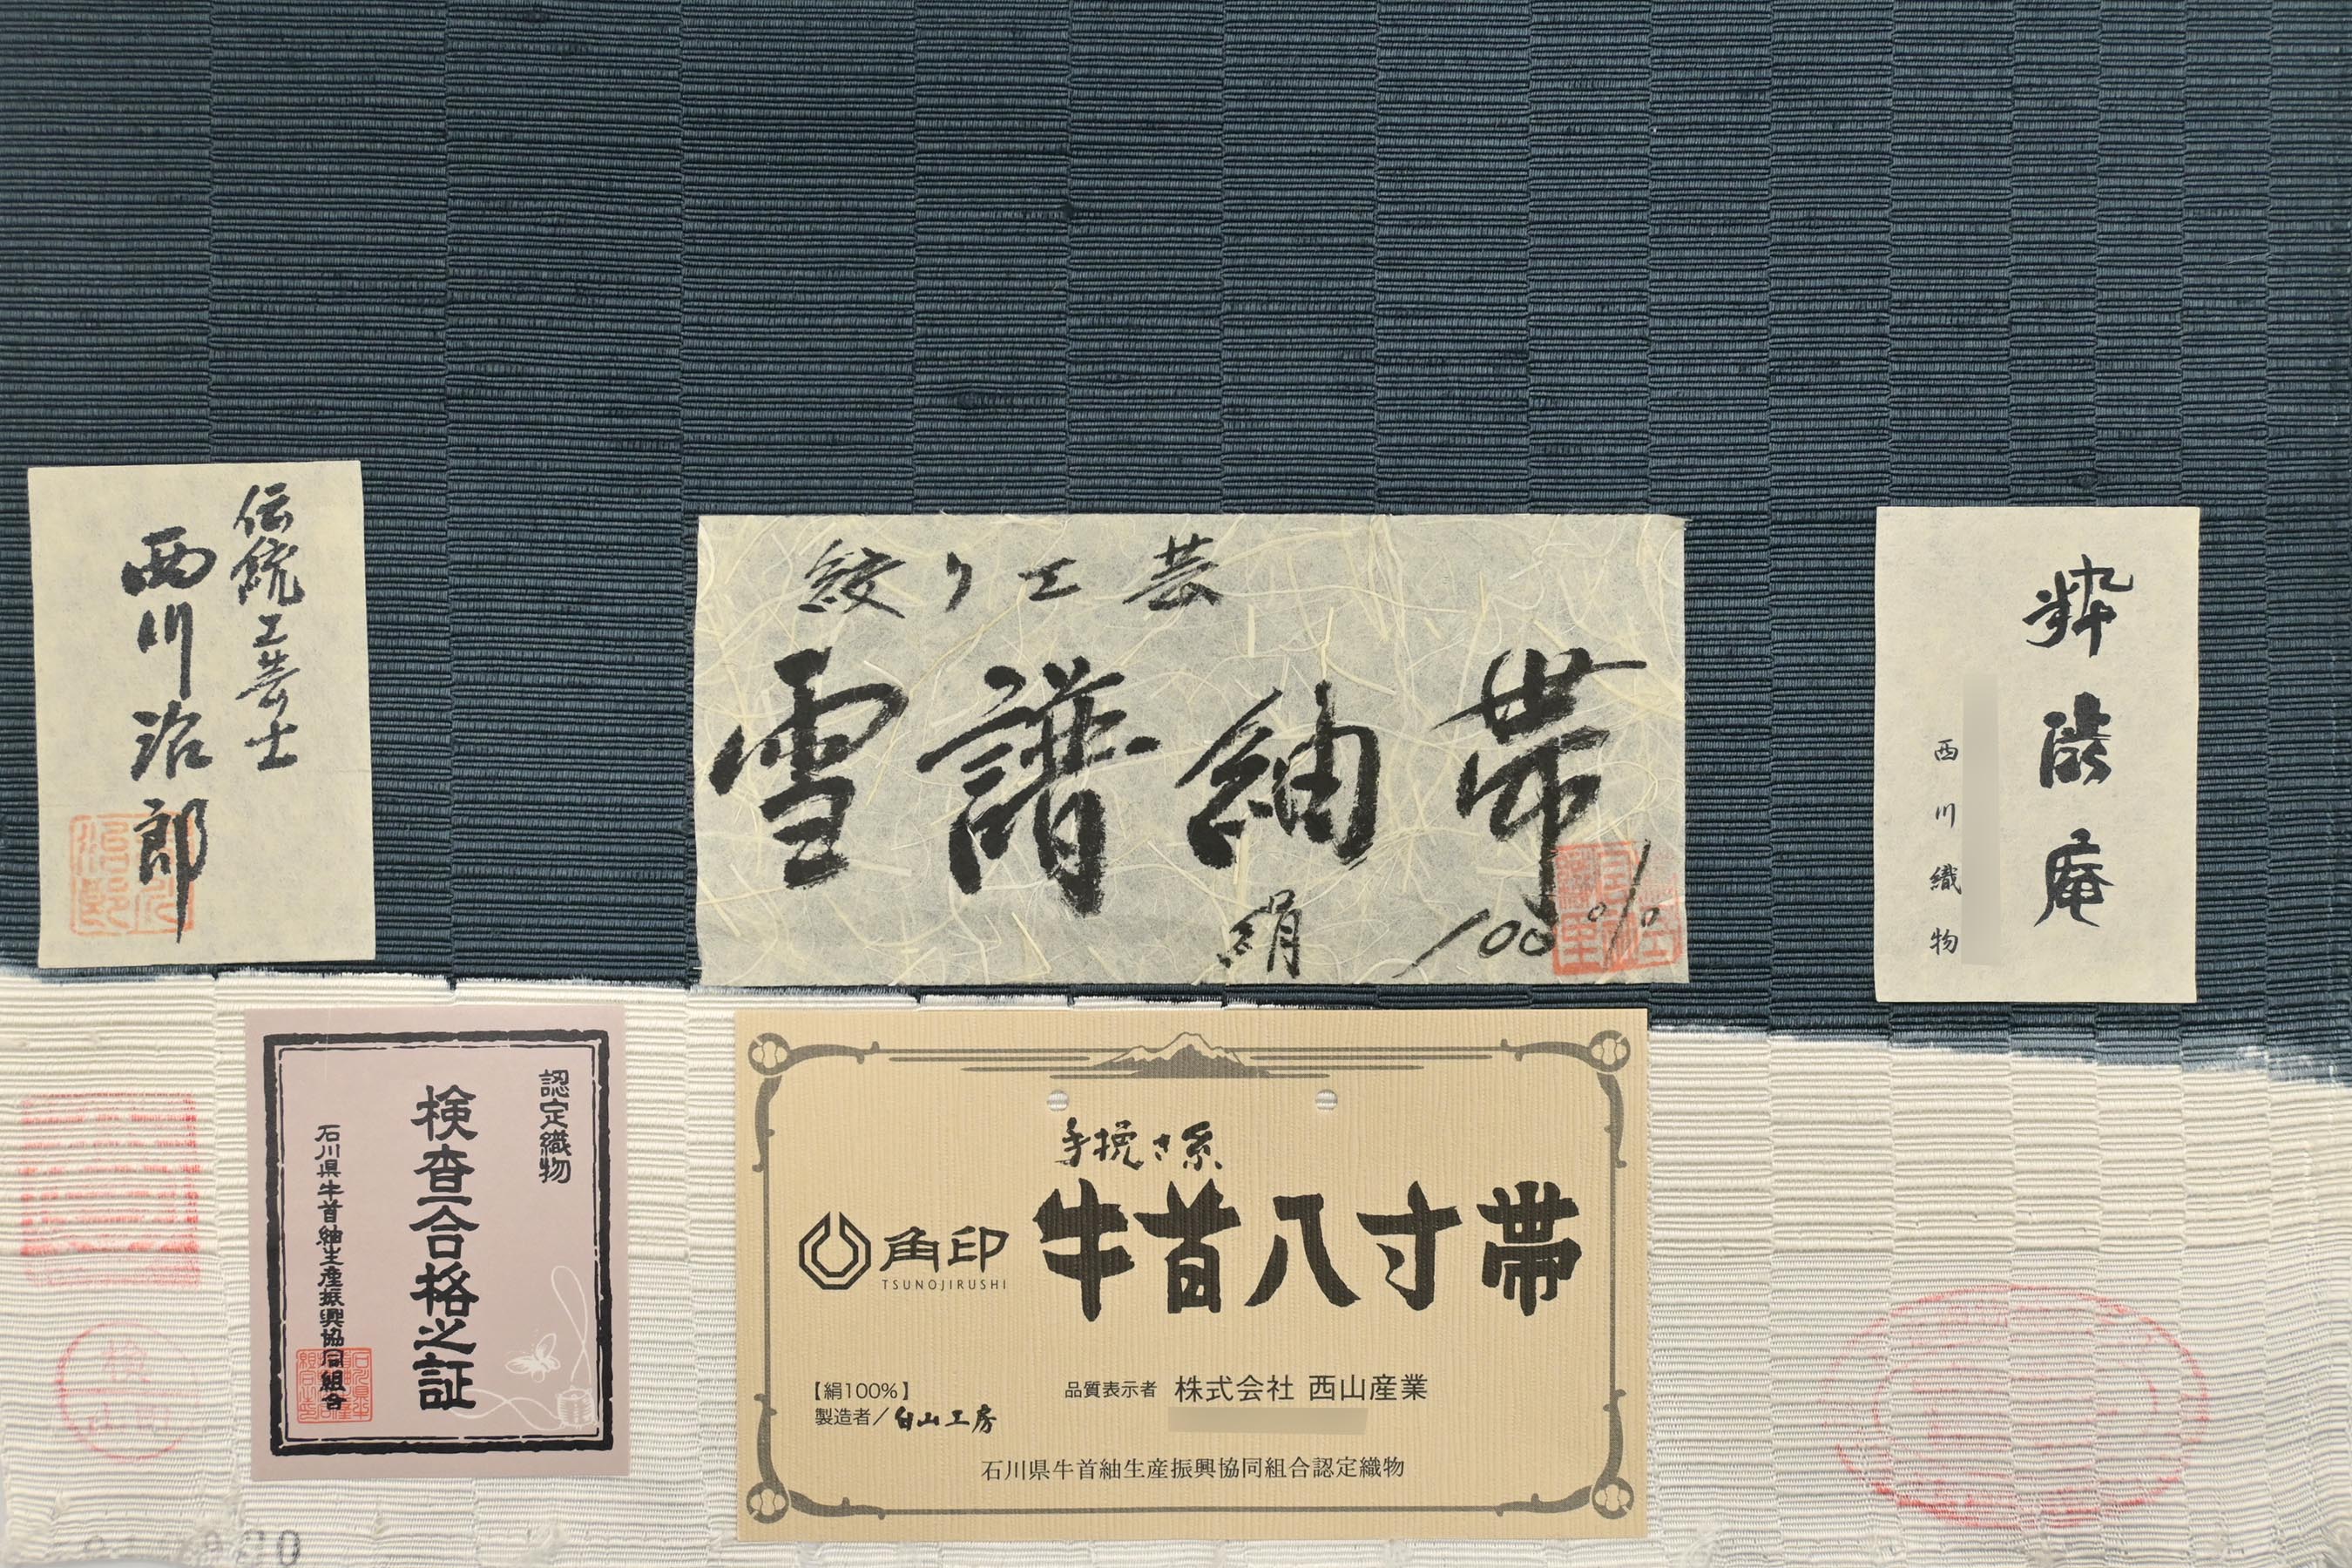 伝統工芸士
西川治郎
絞り工芸
雪譜紬帯
絹 100%
粋
庵
西川織物
認定織物
検査合格之証
石川県牛首紬生産振興協同組合
手挽き糸
角印
TSUNOJIRUSHI
牛首八寸帯
【絹100%】
製造者/白山工房
品質表示者 株式会社 西山産業
石川県牛首紬生産振興協同組合認定織物
検